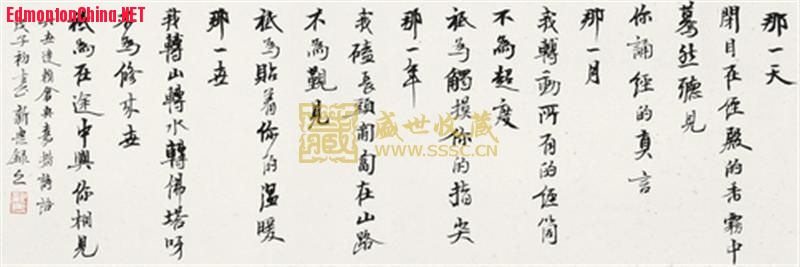 那一天
閉目在經殿的香霧中
驀然聽見
你誦經的真言
那一月
我轉動所有的經筒
不為超度
祗為觸摸你的指尖
那一年
我磕長頭匍匐在山路
不為覲見
祗為貼著你的溫暖
那一世
我轉山轉水轉佛塔呀
不為修來世
祗為在途中與你相見
倉央嘉措詩
戊子初
錄之
EdmontonChina.NET
盛世收藏
www.sssc.cn